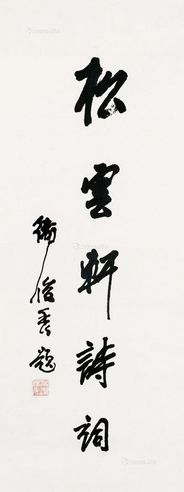 松雲軒詩詞
衛俊秀題